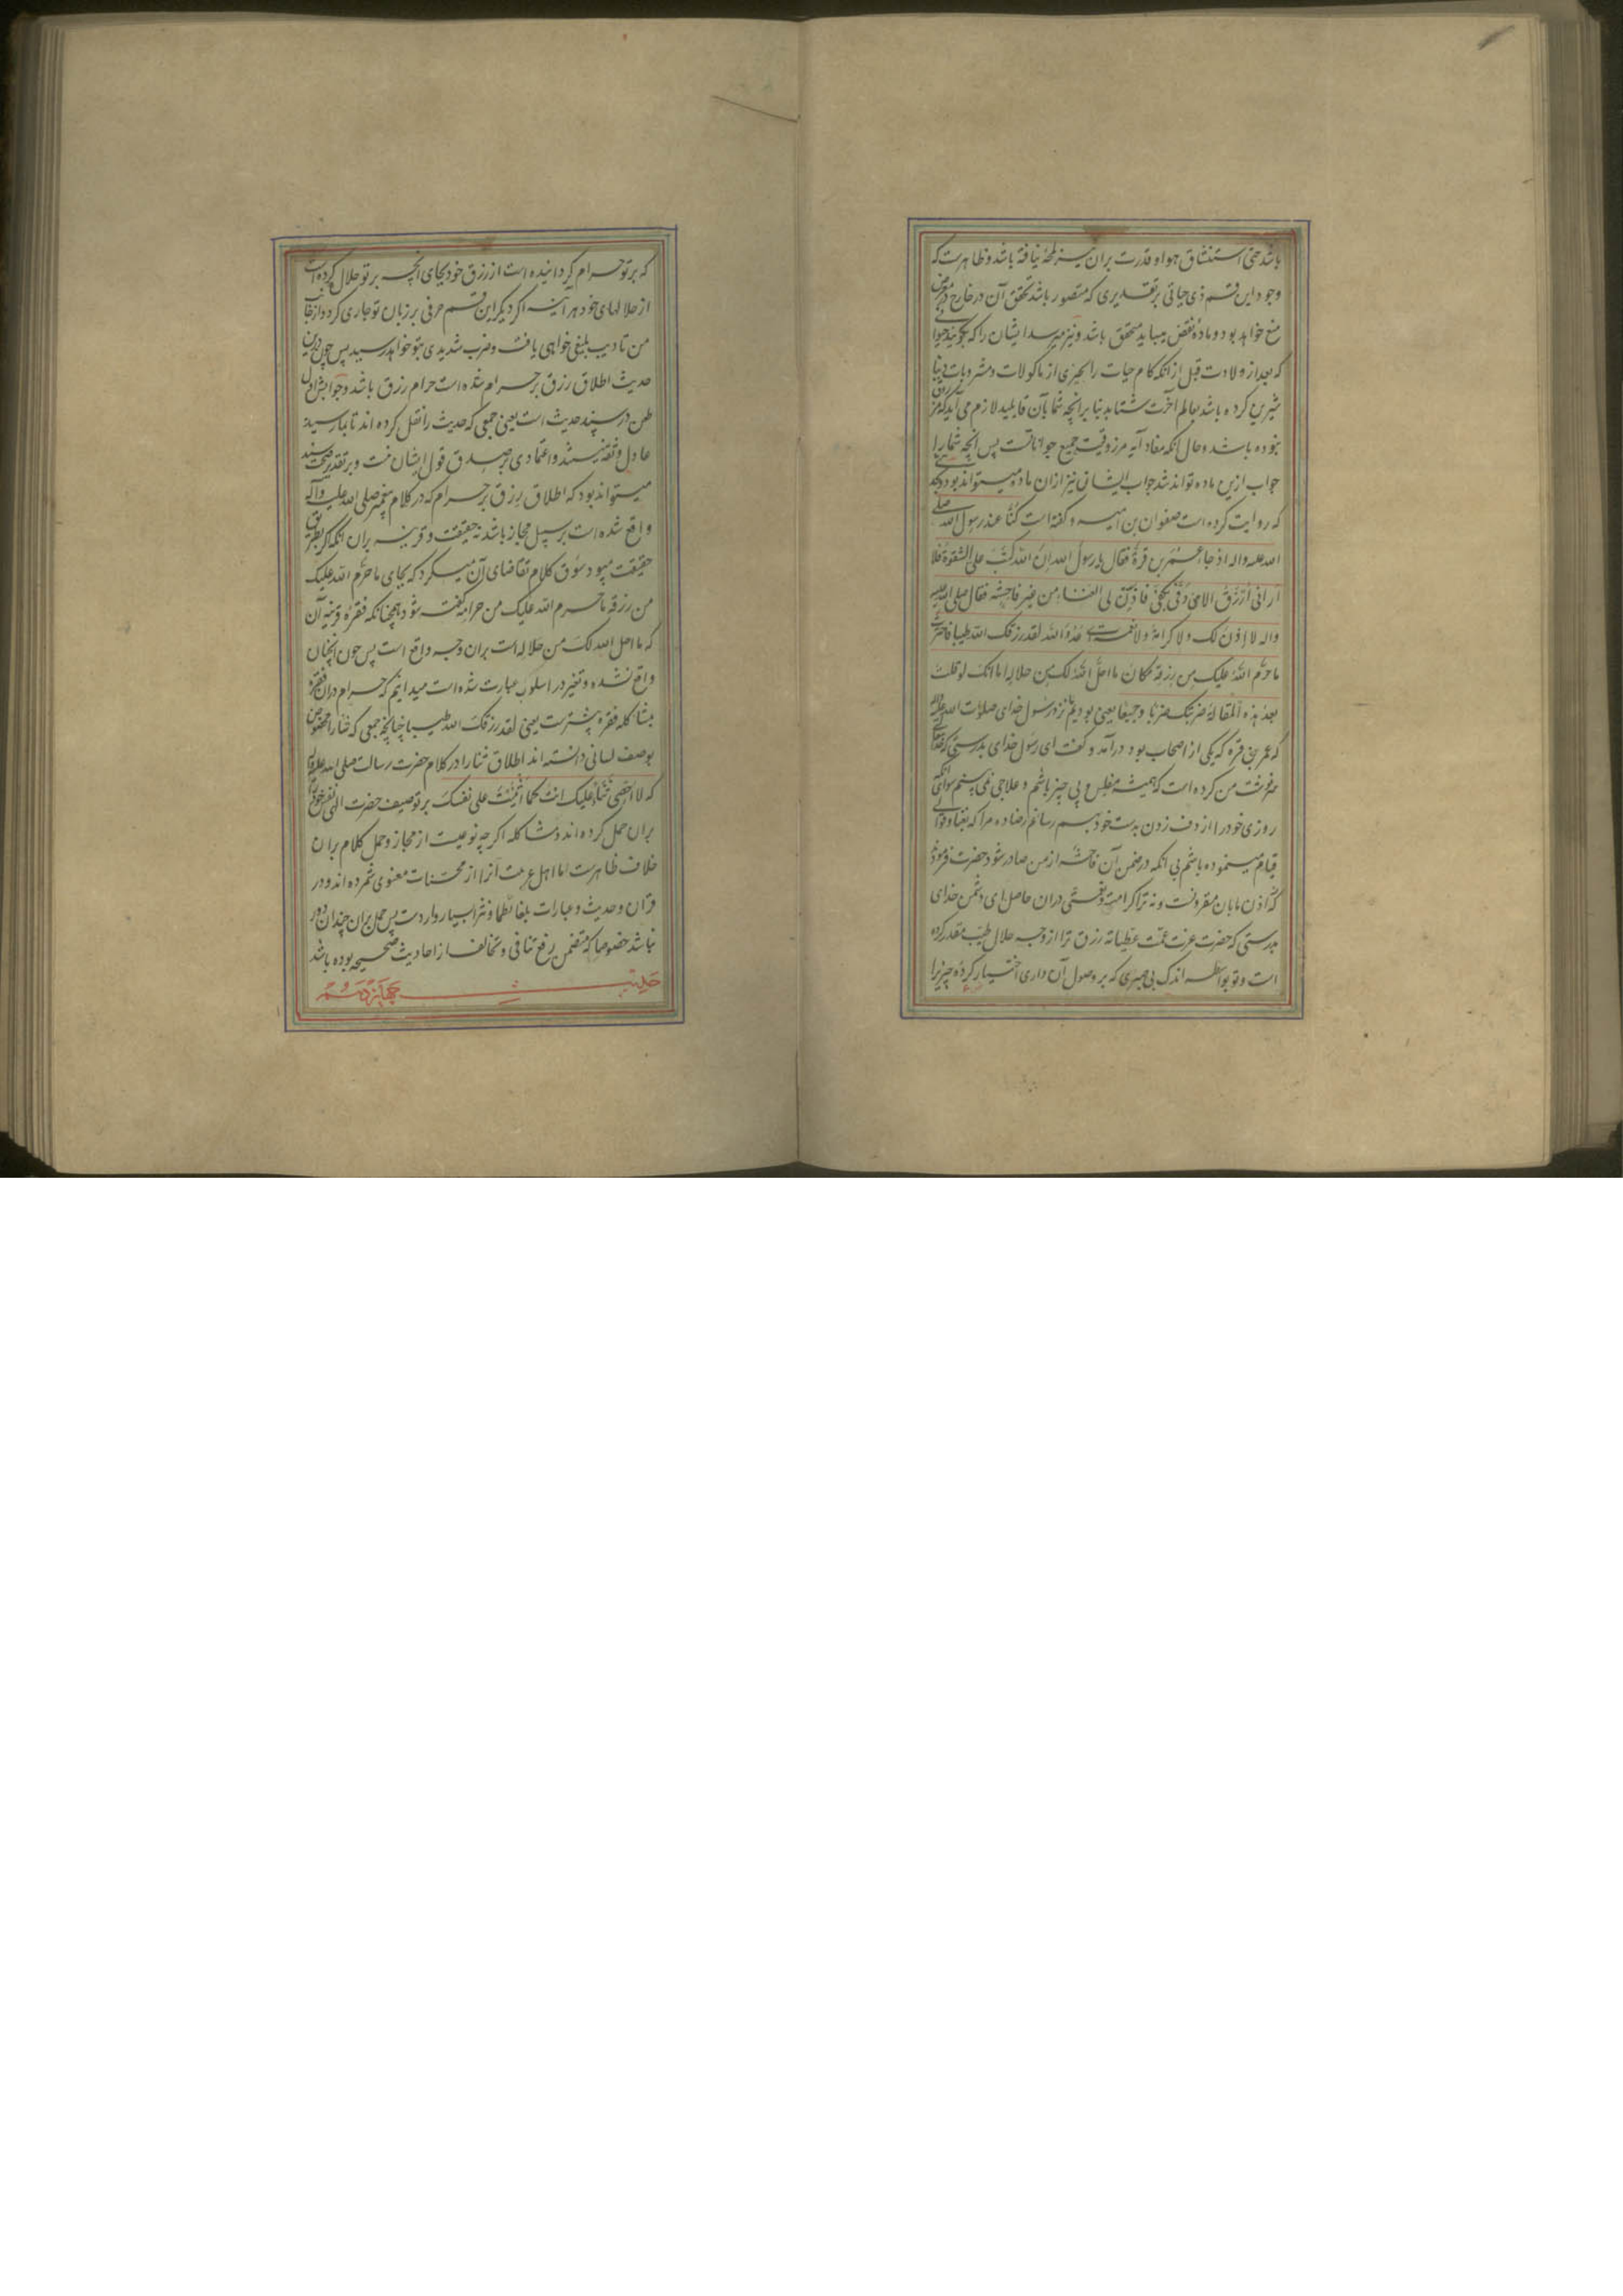 باشد حتی استنشاق هوا و قدرت بران نیز لمحهٔ نیافته باشد و ظاهرست که
وجود این قسم ذی حیاتی بر تقدیری که متصور باشد تحقق آن در خارج در معرض
منع خواهد بود و ماده نقض میباید متحقق باشد و نیز میرسد ایشان را که بگویند حیوانی
که بعد از ولادت قبل از آنکه کام حیات را بچیزی از ماکولات و مشروبات دنیا
شیرین کرده باشد بعالم آخرت شتابد بنا بر انچه شما بآن قایلید لازم می آید که مرزوق
نبوده باشد و حال آنکه مفاد آیه مرزوقیت جمیع حیواناتست پس انچه شما را
جواب ازین ماده تواند شد جواب ایشان نیز ازان ماده میتواند بود
که روایت کرده است صفوان بن امیه و گفته است کنّا عند رسول الله صلی
الله علیه واله اذ جاء عمر بن قرة فقال یا رسول الله ان الله کتب علی الشقوة فلا
ارانی ارزق الا من دفّی بکفّی فاذن لی الغناء من غیر فاحشة فقال صلی الله علیه
واله لا اذن لک ولا کرامة ولا نعمة ای عدو الله لقد رزقک الله طیبا فاخترت
ما حرّم الله علیک من رزقه مکان ما احلّ الله لک من حلاله اما انک لو قلت
بعد هذه المقالة ضربتک ضربا وجیعا یعنی بودیم نزد رسول خدای صلوات الله علیه واله
که عمر بن قره که یکی از اصحاب بود درآمد و گفت ای رسول خدای بدرستی که خدای
سرنوشت من کرده است که همیشه مفلس و بی چیز باشم و علاجی نمی بینم سوای آنکه
روزی خود را از دف زدن بدست خود بهم رسانم رضا ده مرا که بغنا
قیام مینموده باشم بی آنکه در ضمن آن فاحشه از من صادر شود حضرت فرمود
که اذن ما بان مقرون نیست و نه ترا کرامت و نعمتی دران حاصل ای دشمن خدای
بدرستی که حضرت عزت عمّت عطیاته رزق ترا از وجه حلال طیب مقدر کرده
است و تو بواسطه اندک بی صبری که بر وصول آن داری اختیار کردهٔ چیزی را
که بر تو حرام گردانیده است از رزق خود بجای انچه بر تو حلال کرده است
از حلالهای خود هر آینه اگر دیگر این قسم حرفی بر زبان تو جاری گردد از جانب
من تادیب بلیغی خواهی یافت و ضرب شدیدی بتو خواهد رسید پس چون درین
حدیث اطلاق رزق بر حرام شده است حرام رزق باشد و جوابش اول
طعن در سند حدیث است یعنی جمعی که حدیث را نقل کرده اند تا بما رسیده
عادل و ثقه نیستند و اعتمادی بر صدق قول ایشان نیست و بر تقدیر صحت سند
میتواند بود که اطلاق رزق بر حرام که در کلام پیغمبر صلی الله علیه وآله
واقع شده است بر سبیل مجاز باشد نه حقیقت و قرینه بران آنکه اگر بطریق
حقیقت میبود سوق کلام تقاضای آن میکرد که بجای ما حرّم الله علیک
من رزقه ما حرم الله علیک من حرامه گفته شود همچنانکه فقره قرینه آن
که ما احل الله لک من حلاله است بران وجه واقع است پس چون انچنان
واقع نشده و تغییر در اسلوب عبارت شده است میدانیم که حرام دران فقره
بمشاکله فقره پیشترست یعنی لقد رزقک الله طیبا چنانچه جمعی که ثنا را مخصوص
بوصف لسانی دانسته اند اطلاق ثنا را در کلام حضرت رسالت صلی الله علیه واله
که لا احصی ثناء علیک انت کما اثنیت علی نفسک بر توصیف حضرت الهی نفس خود را
بران حمل کرده اند و مشاکله اگر چه نوعیست از مجاز و حمل کلام بران
خلاف ظاهرست اما اهل عربیت آنرا از محسنات معنوی شمرده اند و در
قران و حدیث و عبارات بلغا نظما و نثرا بسیار واردست پس حمل بران چندان دور
نباشد خصوصا که متضمن رفع تنافی و تخالف از احادیث صحیحه بوده باشد
حدیث چهاردهم